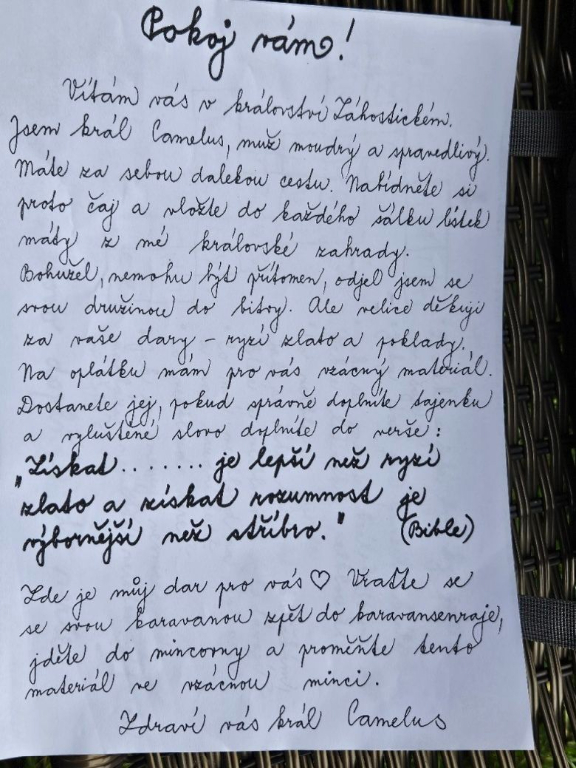 Pokoj vám!
Vítám vás v království Záhostickém.
Jsem král Camelus, muž moudrý a spravedlivý.
Máte za sebou dalekou cestu. Nabídněte si
proto čaj a vložte do každého šálku lístek
máty z mé královské zahrady.
Bohužel, nemohu být přítomen, odjel jsem se
svou družinou do bitvy. Ale velice děkuji
za vaše dary – ryzí zlato a poklady.
Na oplátku mám pro vás vzácný materiál.
Dostanete jej, pokud správně doplníte tajenku
a vyluštěné slovo doplníte do verše:
"Získat ....... je lepší než ryzí
zlato a získat rozumnost je
výbornější než stříbro." (Bible)
Zde je můj dar pro vás ♡ Vraťte se
se svou karavanou zpět do karavansenraje,
jděte do mincovny a proměňte tento
materiál ve vzácnou minci.
Zdraví vás král Camelus